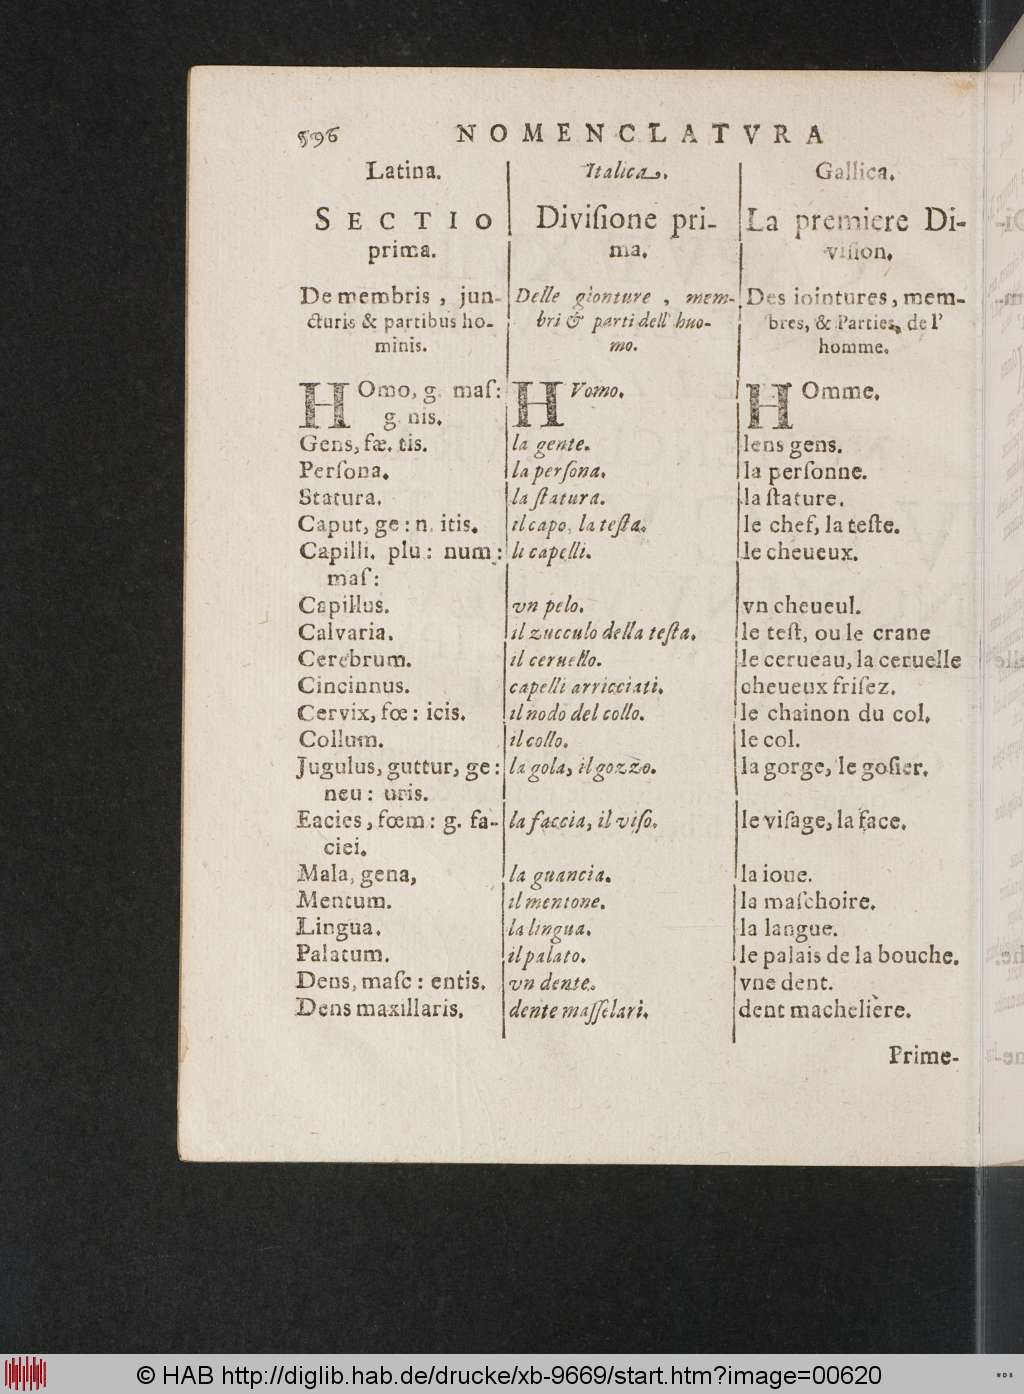 596 NOMENCLATVRA
Latina. Italica. Gallica.
SECTIO Diviſione pri- La premiere Di-
prima. ma. viſion.
De membris, jun- Delle gionture, mem- Des iointures, mem-
cturis & partibus ho- bri & parti dell' huo- bres, & Parties, de l'
minis. mo. homme.
HOmo, g. maſ: HVomo. HOmme.
g. nis.
Gens, fæ. tis. la gente. lens gens.
Perſona. la perſona. la perſonne.
Statura. la ſtatura. la ſtature.
Caput, ge: n. itis. il capo, la teſta. le chef, la teſte.
Capilli. plu: num: li capelli. le cheueux.
maſ:
Capillus. vn pelo. vn cheueul.
Calvaria. il zucculo della teſta. le teſt, ou le crane
Cerebrum. il ceruello. le cerueau, la ceruelle
Cincinnus. capelli arricciati. cheueux friſez.
Cervix, fœ: icis. il nodo del collo. le chainon du col.
Collum. il collo. le col.
Jugulus, guttur, ge: la gola, il gozzo. la gorge, le goſier.
neu: uris.
Eacies, fœm: g. fa- la faccia, il viſo. le viſage, la face.
ciei.
Mala, gena, la guancia. la ioue.
Mentum. il mentone. la maſchoire.
Lingua. la lingua. la langue.
Palatum. il palato. le palais de la bouche.
Dens, maſc: entis. vn dente. vne dent.
Dens maxillaris. dente maſſelari. dent machelière.
Prime-
© HAB http://diglib.hab.de/drucke/xb-9669/start.htm?image=00620